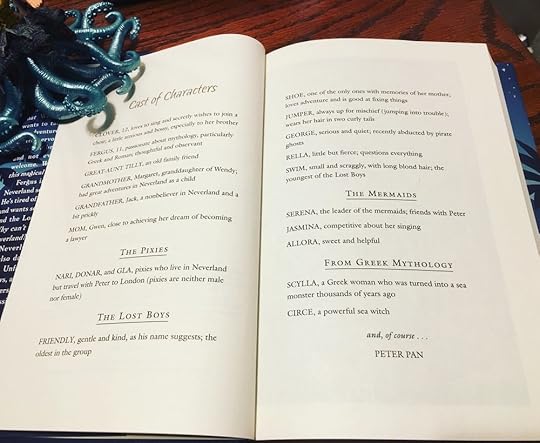 Cast of Characters
CLOVER, 12, loves to sing and secretly wishes to join a
choir; a little anxious and bossy, especially to her brother
FERGUS, 11, passionate about mythology, particularly
Greek and Roman; thoughtful and observant
GREAT-AUNT TILLY, an old family friend
GRANDMOTHER, Margaret, granddaughter of Wendy;
had great adventures in Neverland as a child
GRANDFATHER, Jack, a nonbeliever in Neverland and a
bit prickly
MOM, Gwen, close to achieving her dream of becoming
a lawyer
The Pixies
NARI, DONAR, and GLA, pixies who live in Neverland
but travel with Peter to London (pixies are neither male
nor female)
The Lost Boys
FRIENDLY, gentle and kind, as his name suggests; the
oldest in the group
SHOE, one of the only ones with memories of her mother;
loves adventure and is good at fixing things
JUMPER, always up for mischief (jumping into trouble);
wears her hair in two curly tails
GEORGE, serious and quiet; recently abducted by pirate
ghosts
RELLA, little but fierce; questions everything
SWIM, small and scraggly, with long blond hair; the
youngest of the Lost Boys
The Mermaids
SERENA, the leader of the mermaids; friends with Peter
JASMINA, competitive about her singing
ALLORA, sweet and helpful
From Greek Mythology
SCYLLA, a Greek woman who was turned into a sea
monster thousands of years ago
CIRCE, a powerful sea witch
and, of course . . .
PETER PAN